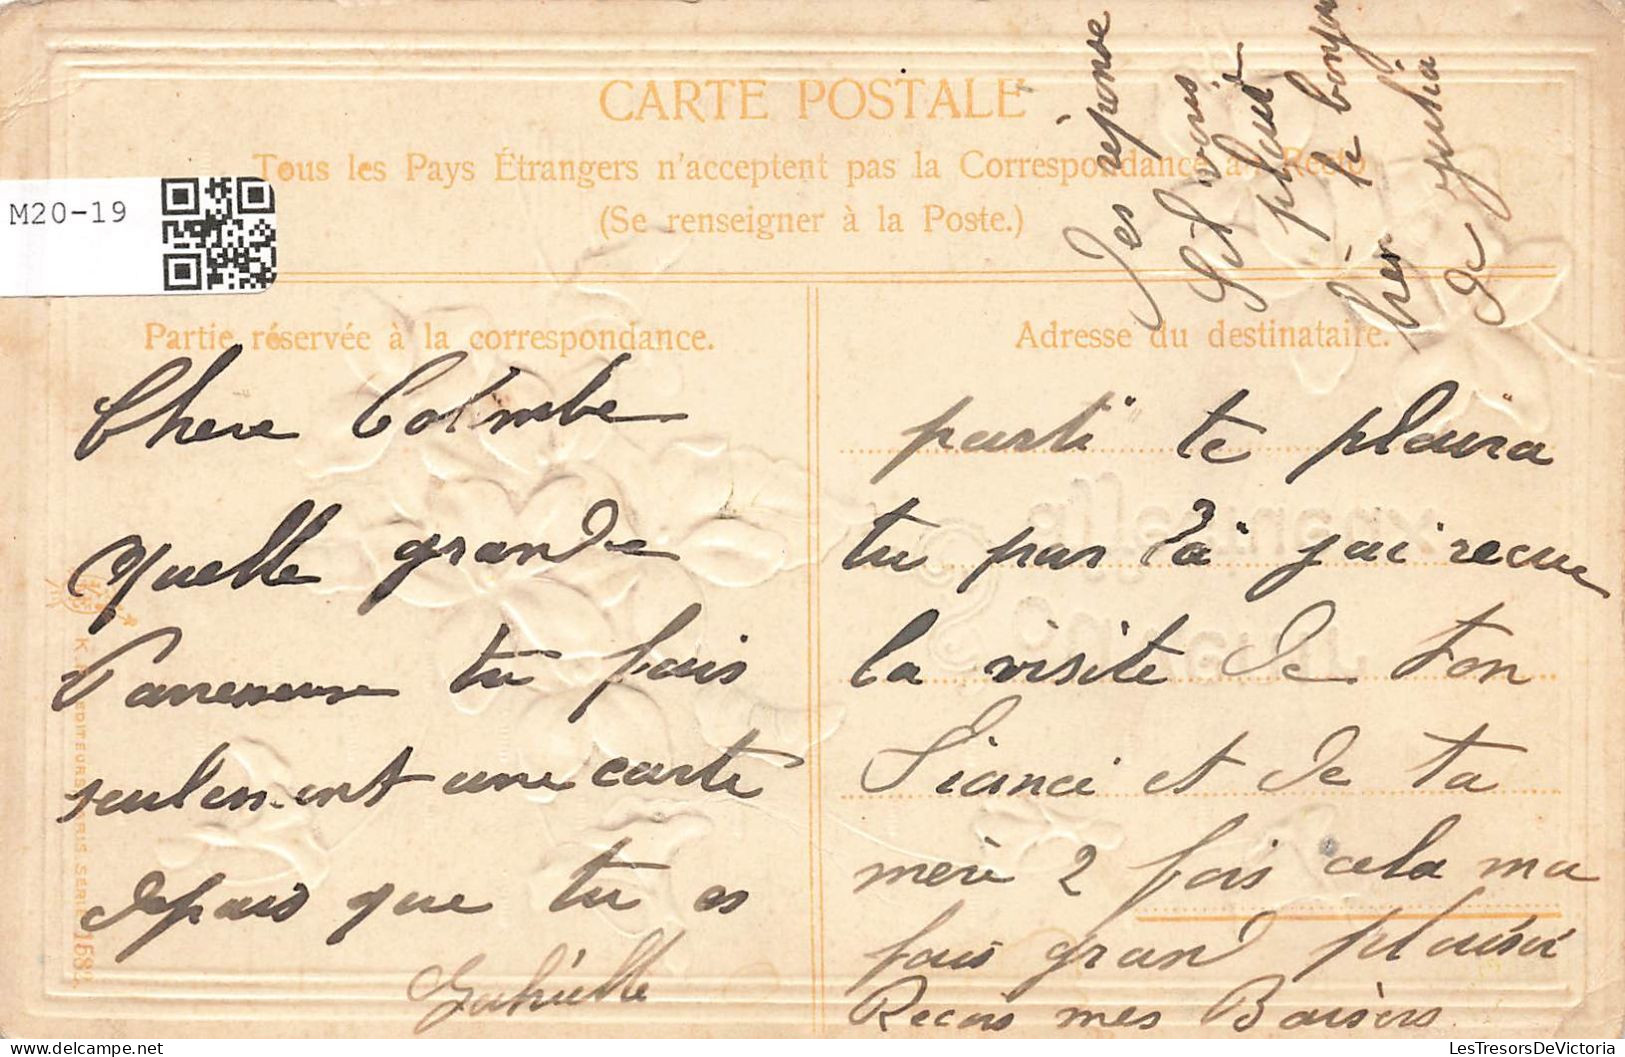 CARTE POSTALE
Tous les Pays Étrangers n'acceptent pas la Correspondance au Recto
(Se renseigner à la Poste.)
M20-19
Partie réservée à la correspondance.
Chere Colmbe
Quelle grande
Paresseuse tu fais
seulement une carte
depuis que tu es
Gabrielle
Adresse du destinataire.
parti te plaira
tu pas là j'ai recue
la visite de ton
Fiancé et de ta
mère 2 fois cela ma
fais grand plaisir
Recois mes Baisers
réponse
Sil vous
plait
le bonjour
de
K. EDITEURS PARIS SERIE 158
LesTresorsDeVictoria.com